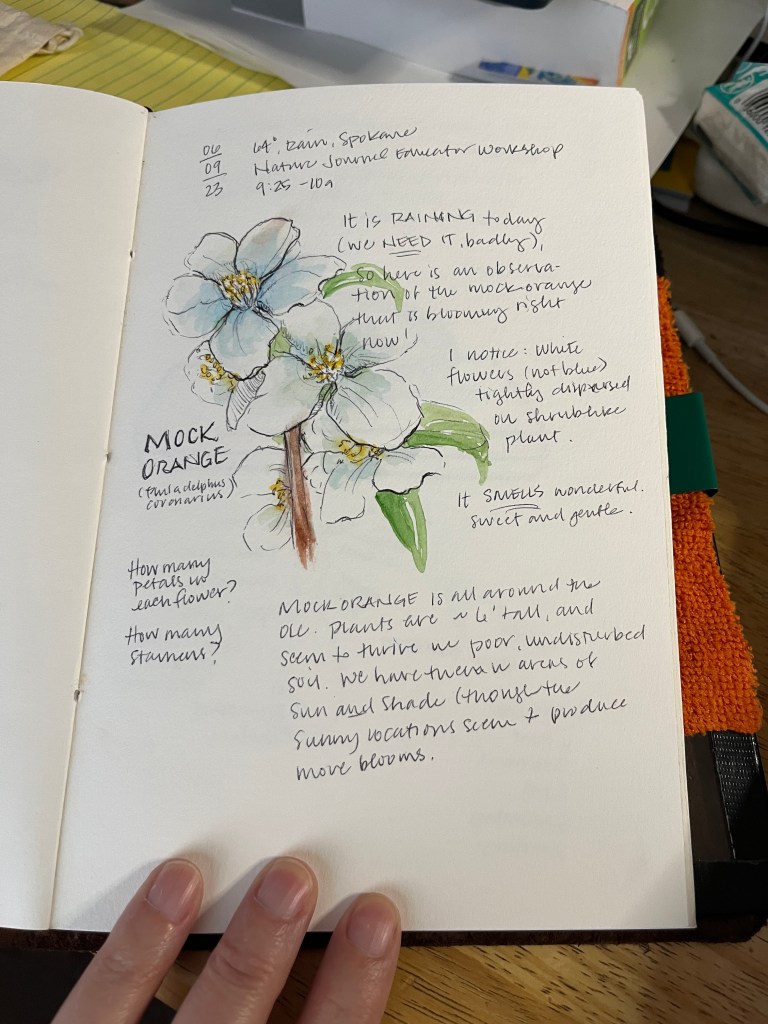 06
09
23
64°, Rain, Spokane
Nature Journal Educator Workshop
9:25 - 10a
It is RAINING today
(we NEED IT, badly),
so here is an observa-
tion of the mock orange
that is blooming right
now!
I notice: White
flowers (not blue)
tightly dispersed
on shrublike
plant.
It SMELLS wonderful.
sweet and gentle.
MOCK
ORANGE
coronarius)
How many
petals in
each flower?
How many
stamens?
MOCK ORANGE is all around the
OLC. Plants are ~ 6' tall, and
seem to thrive in poor, undisturbed
soil. We have them in areas of
sun and shade (though the
sunny locations seem to produce
more blooms.